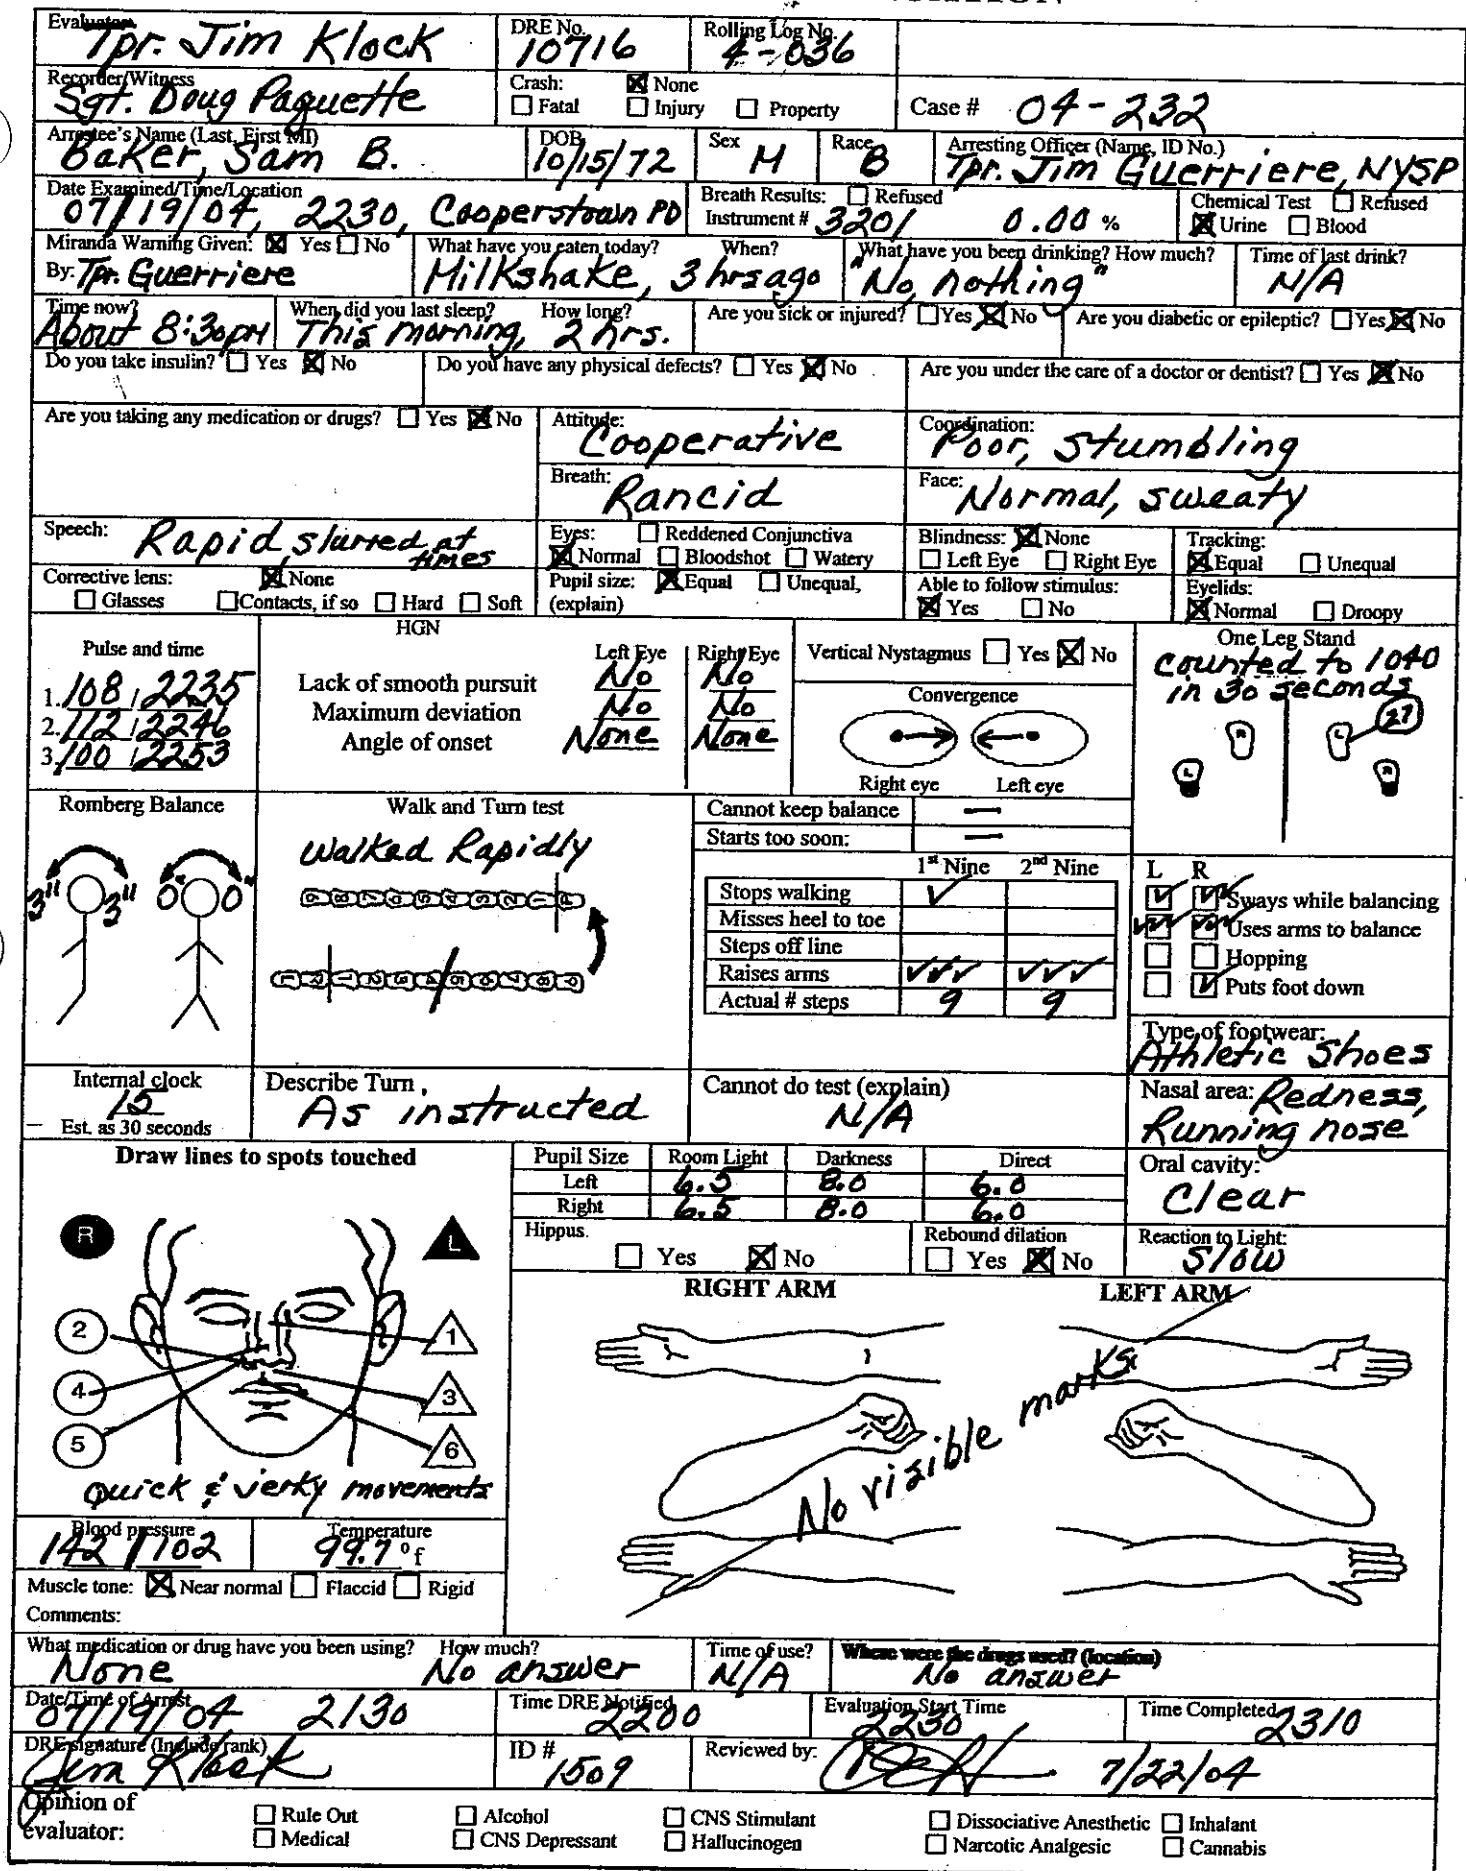 Evaluator Tpr. Jim Klock DRE No. 10716 Rolling Log No. 4-036
Recorder/Witness Sgt. Doug Paquette Crash: ☒ None ☐ Fatal ☐ Injury ☐ Property Case # 04-232
Arrestee's Name (Last, First MI) Baker, Sam B. DOB 10/15/72 Sex M Race B Arresting Officer (Name, ID No.) Tpr. Jim Guerriere, NYSP
Date Examined/Time/Location 07/19/04, 2230, Cooperstown PD Breath Results: ☐ Refused Instrument # 3201 0.00 % Chemical Test ☐ Refused ☒ Urine ☐ Blood
Miranda Warning Given: ☒ Yes ☐ No By: Tpr. Guerriere What have you eaten today? When? Milkshake, 3 hrs ago What have you been drinking? How much? "No, nothing" Time of last drink? N/A
Time now? About 8:30pm When did you last sleep? How long? This morning, 2 hrs. Are you sick or injured? ☐ Yes ☒ No Are you diabetic or epileptic? ☐ Yes ☒ No
Do you take insulin? ☐ Yes ☒ No Do you have any physical defects? ☐ Yes ☒ No Are you under the care of a doctor or dentist? ☐ Yes ☒ No
Are you taking any medication or drugs? ☐ Yes ☒ No Attitude: Cooperative Coordination: Poor, stumbling
Breath: Rancid Face: Normal, sweaty
Speech: Rapid, slurred at times Eyes: ☐ Reddened Conjunctiva ☒ Normal ☐ Bloodshot ☐ Watery Blindness: ☒ None ☐ Left Eye ☐ Right Eye Tracking: ☒ Equal ☐ Unequal
Corrective lens: ☒ None ☐ Glasses ☐ Contacts, if so ☐ Hard ☐ Soft Pupil size: ☒ Equal ☐ Unequal, (explain) Able to follow stimulus: ☒ Yes ☐ No Eyelids: ☒ Normal ☐ Droopy
Pulse and time
1. 108 / 2235
2. 112 / 2246
3. 100 / 2253
HGN Left Eye Right Eye
Lack of smooth pursuit No No
Maximum deviation No No
Angle of onset None None
Vertical Nystagmus ☐ Yes ☒ No
Convergence
Right eye Left eye
One Leg Stand
counted to 1040
in 30 seconds
27
R L
L R
Romberg Balance
3" 3" 0" 0"
Walk and Turn test
Walked Rapidly
Cannot keep balance —
Starts too soon: —
1st Nine 2nd Nine
Stops walking ✓
Misses heel to toe
Steps off line
Raises arms ✓✓✓ ✓✓✓
Actual # steps 9 9
L R
☑ ☑ Sways while balancing
☑ ☑ Uses arms to balance
☐ ☐ Hopping
☐ ☑ Puts foot down
Type of footwear: Athletic shoes
Internal clock 15 Est. as 30 seconds
Describe Turn As instructed
Cannot do test (explain) N/A
Nasal area: Redness, Running nose
Draw lines to spots touched
R L
2 4 5 1 3 6
Quick & jerky movements
Pupil Size Room Light Darkness Direct
Left 6.5 8.0 6.0
Right 6.5 8.0 6.0
Oral cavity: Clear
Hippus. ☐ Yes ☒ No Rebound dilation ☐ Yes ☒ No Reaction to Light: Slow
RIGHT ARM LEFT ARM
No visible marks
Blood pressure 142 / 102 Temperature 99.7 °f
Muscle tone: ☒ Near normal ☐ Flaccid ☐ Rigid
Comments:
What medication or drug have you been using? None How much? No answer Time of use? N/A Where were the drugs used? (location) No answer
Date/Time of Arrest 07/19/04 2130 Time DRE Notified 2200 Evaluation Start Time 2230 Time Completed 2310
DRE signature (Include rank) Jim Klock ID # 1509 Reviewed by: 7/22/04
Opinion of evaluator: ☐ Rule Out ☐ Alcohol ☐ CNS Stimulant ☐ Dissociative Anesthetic ☐ Inhalant
☐ Medical ☐ CNS Depressant ☐ Hallucinogen ☐ Narcotic Analgesic ☐ Cannabis